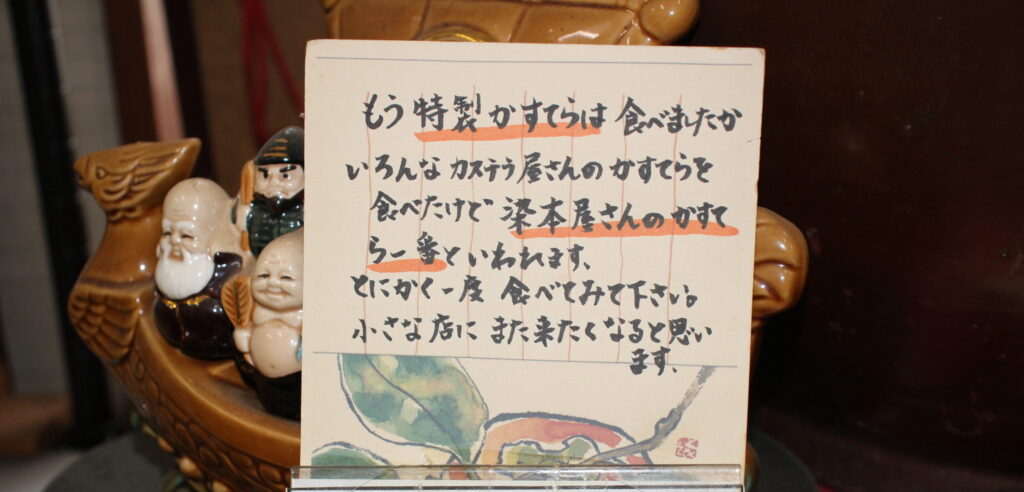 もう特製かすてらは食べましたか
いろんなカステラ屋さんのかすてらを
食べたけど染本屋さんのかすて
ら一番といわれます、
とにかく一度食べてみて下さい。
小さな店にまた来たくなると思い
ます、